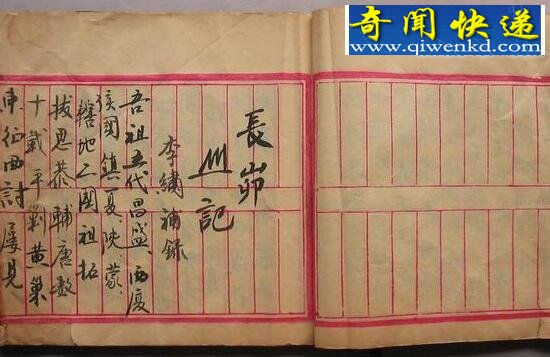 奇闻快递
www.qiwenkd.com
長峁
記
李繡補録
吾祖五代昌盛西夏
國鎮夏陝、蒙、
轄地二祖拓
拔思恭輔唐數
十載平剿黄巢
東征西討屡見